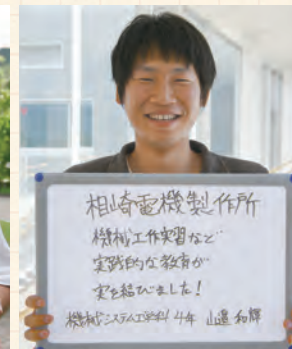 相崎電機製作所
機械工作実習など
実践的な教育が
実を結びました!
機械システム工学科 4年 山邊 和輝